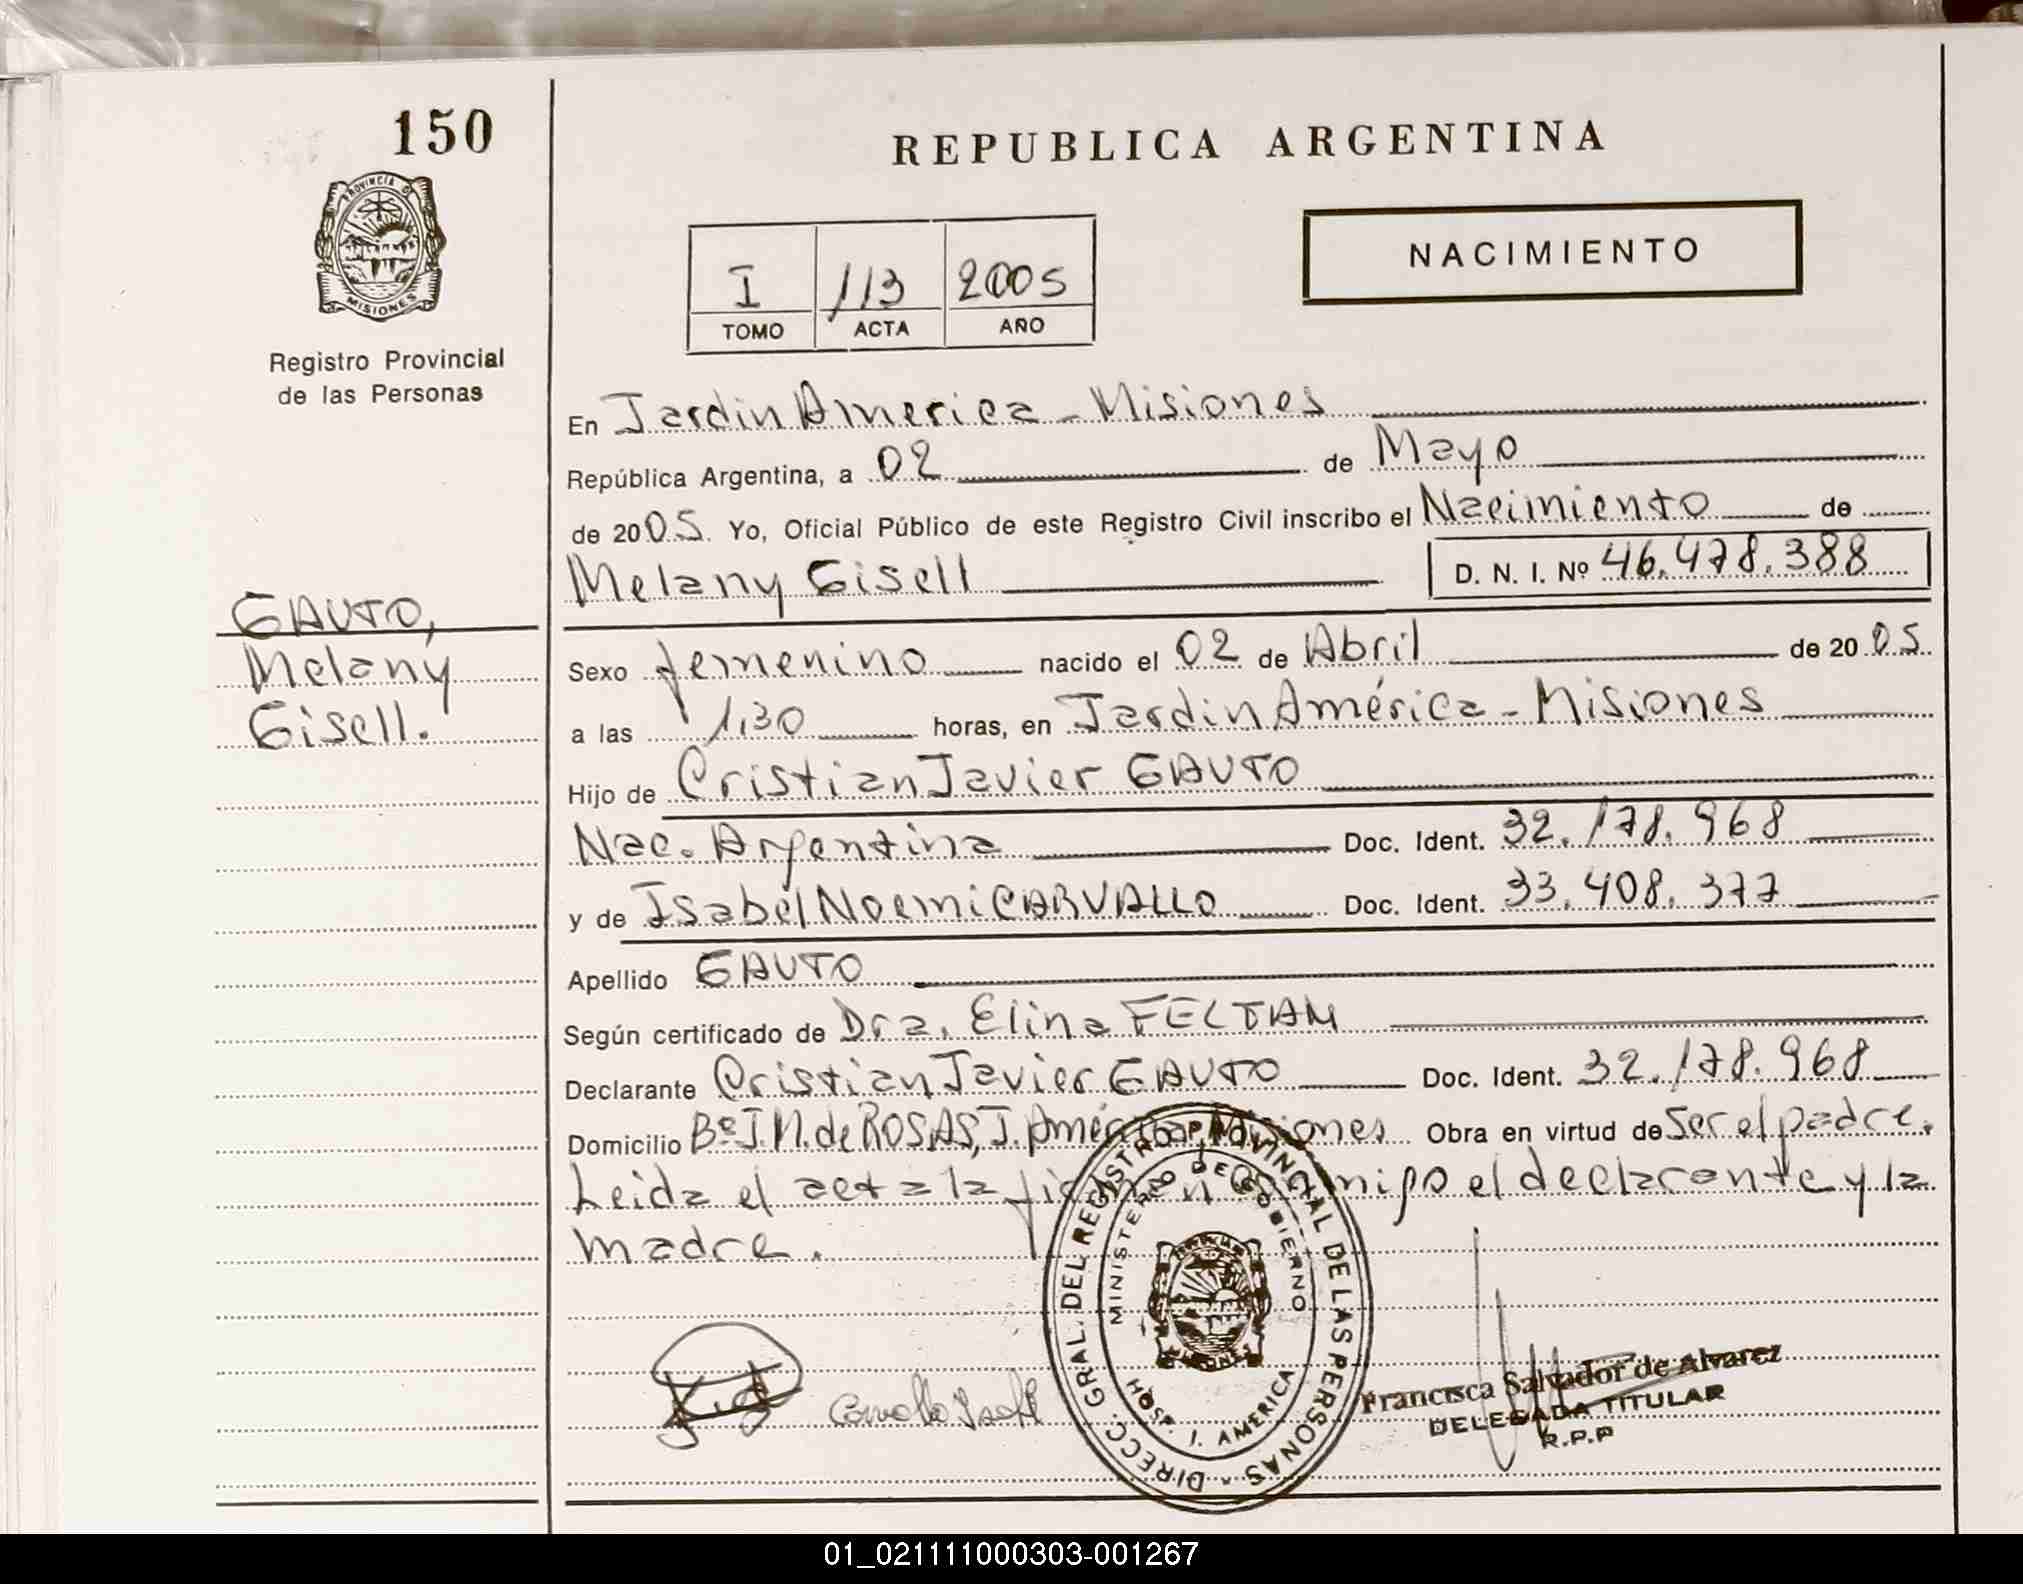 150
REPUBLICA ARGENTINA
PROVINCIA DE
MISIONES
NACIMIENTO
I 113 2005
TOMO ACTA AÑO
Registro Provincial
de las Personas
En Jardin America - Misiones
República Argentina, a 02 de Mayo
de 2005. Yo, Oficial Público de este Registro Civil inscribo el Nacimiento de
Melany Gisell D. N. I. Nº 46.478.388
GAUTO,
Melany
Gisell.
Sexo femenino nacido el 02 de Abril de 2005.
a las 1,30 horas, en Jardin América - Misiones
Hijo de Cristian Javier GAUTO
Nac. Argentina Doc. Ident. 32.178.968
y de Isabel Noemi CARVALLO Doc. Ident. 33.408.377
Apellido GAUTO
Según certificado de Dra. Elina FELTAM
Declarante Cristian Javier GAUTO Doc. Ident. 32.178.968
Domicilio Bº J.M. de ROSAS, J. América, Misiones Obra en virtud de Ser el padre.
Leida el acta la firman conmigo el declarante y la
madre.
DIRECC. GRAL. DEL REGISTRO PROVINCIAL DE LAS PERSONAS
MINISTERIO DE GOBIERNO
MISIONES
HOSP. J. AMERICA
Carvallo Isabel
Francisca Salvador de Alvarez
DELEGADA TITULAR
R.P.P
01_021111000303-001267